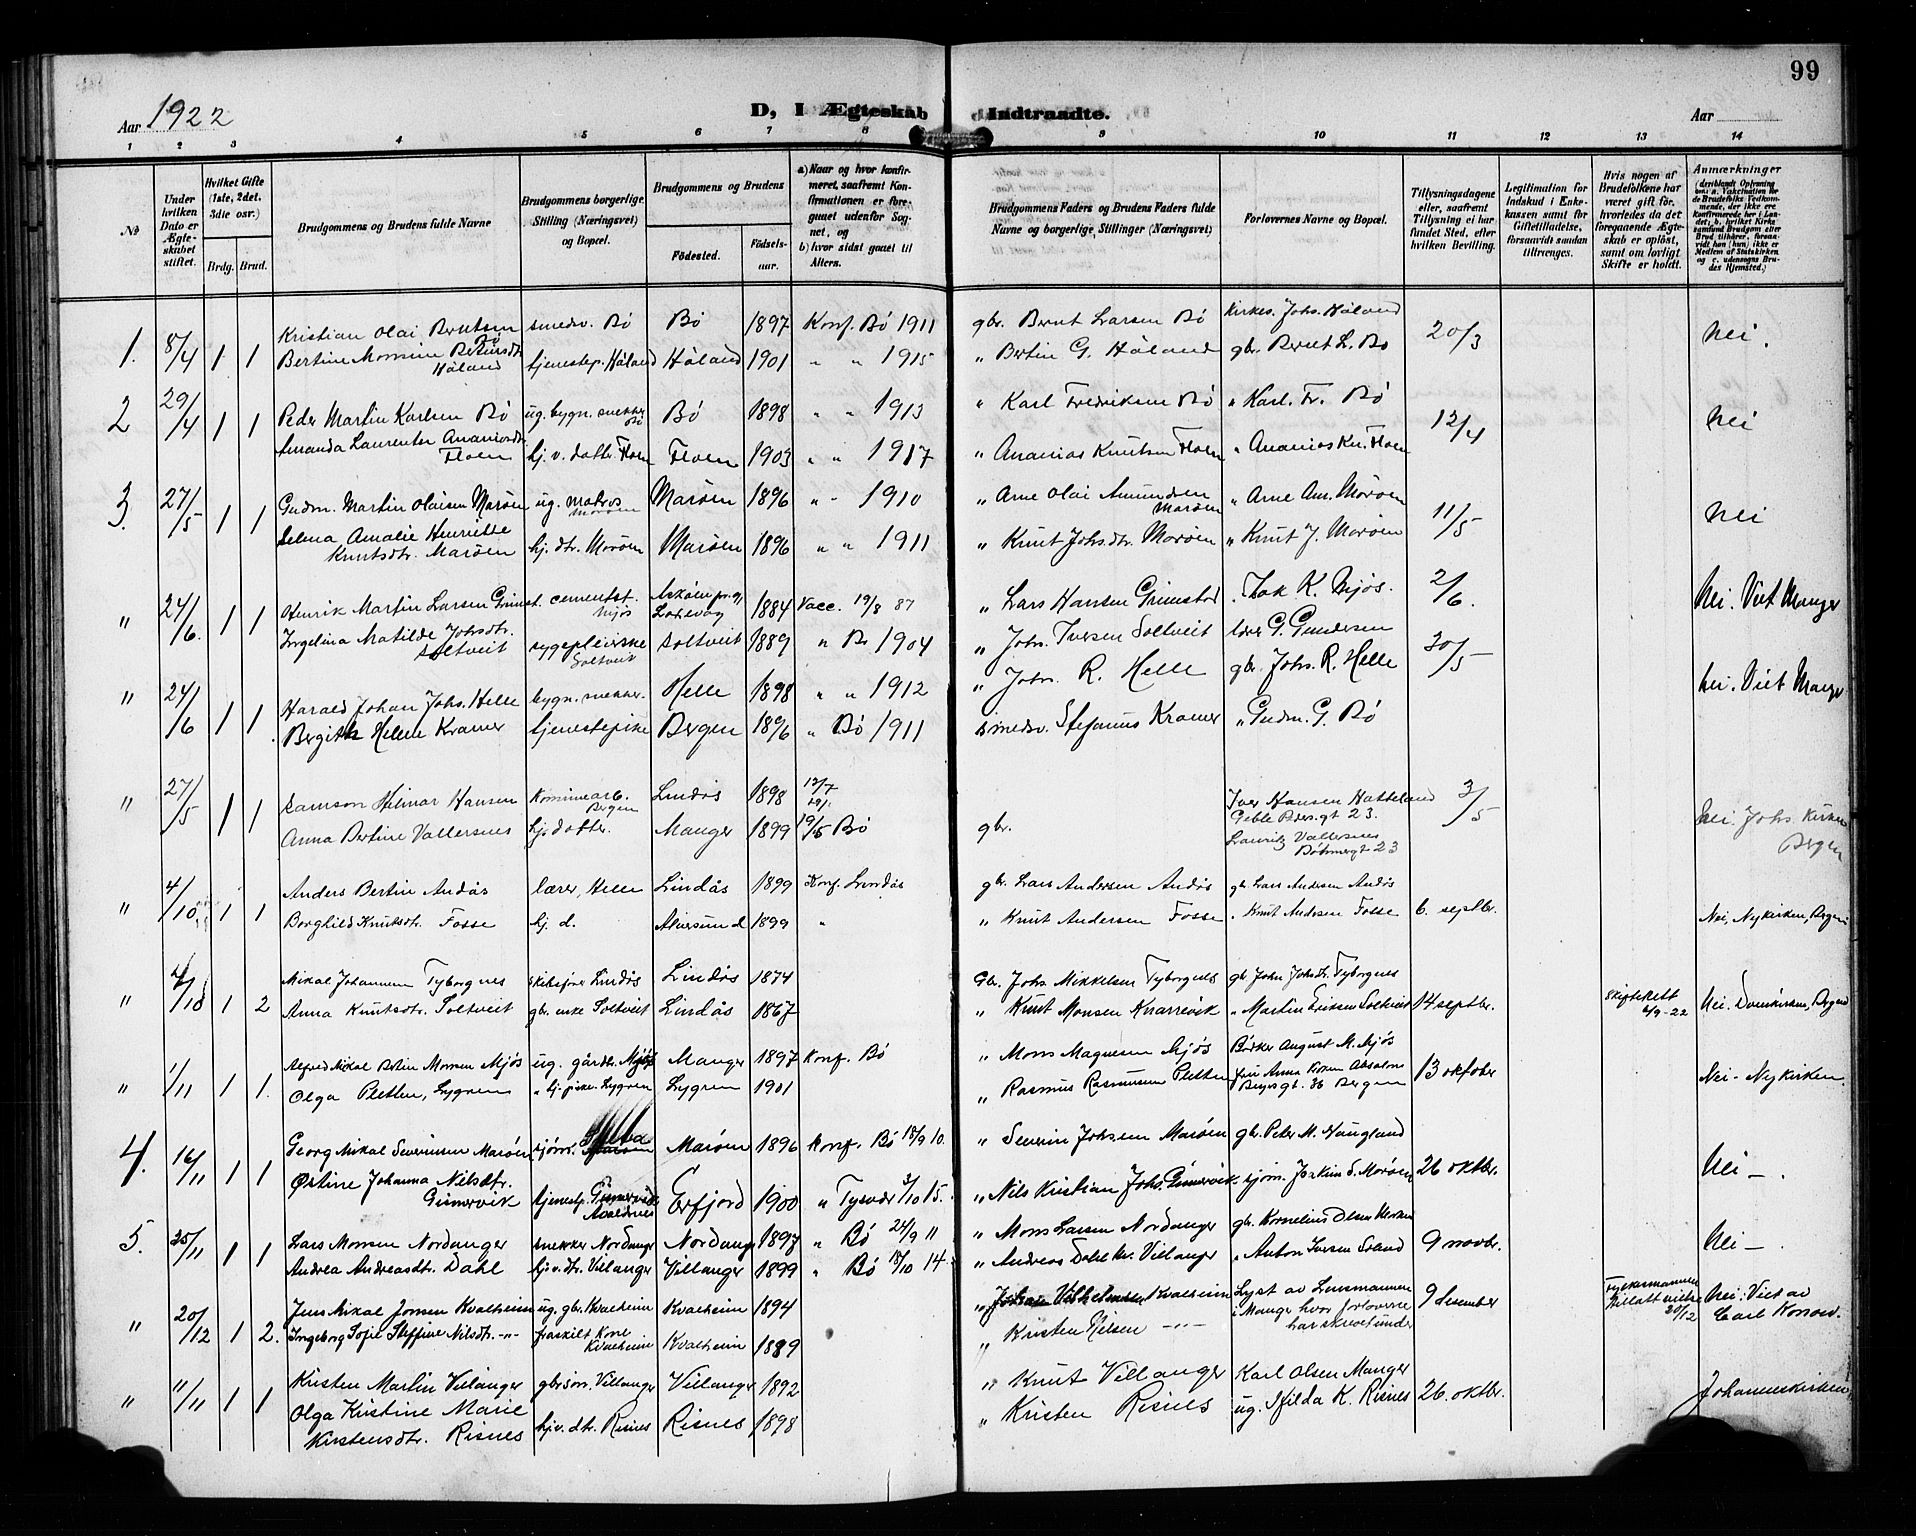 99
Aar 1922
D, I Ægteskab Indtraadte.
Aar
1 2 3 4 5 6 7 8 9 10 11 12 13 14
No
Under hvilken Dato er Ægteskabet stiftet.
Hvilket Gifte (1ste, 2det, 3die osv.)
Brdg. Brud.
Brudgommens og Brudens fulde Navne
Brudgommens borgerlige Stilling (Næringsvei) og Bopæl.
Brudgommens og Brudens
Fødested. Fødselsaar.
a) Naar og hvor konfirmeret, saafremt Konfirmationen er foregaaet udenfor Sognet, og
b) hvor sidst gaaet til Alters.
Brudgommens Faders og Brudens Faders fulde Navne og borgerlige Stillinger (Næringsvei)
Forlovernes Navne og Bopæl.
Tillysningsdagene eller, saafremt Tillysning ei har fundet Sted, efter hvilken Bevilling.
Legitimation for Indskud i Enkekassen samt for Giftetilladelse, forsaavidt saadan tiltrænges.
Hvis nogen af Brudefolkene har været gift før, hvorledes da det foregaaende Ægteskab er opløst, samt om lovligt Skifte er holdt.
Anmærkninger
1. 8/4 1 1 Kristian Olai Berntsen Bø smedsv. Bø Bø 1897 Konf. Bø 1911 gbr. Bernt Larsen Bø Kirkes. Johs. Håland 20/3 Nei.
Bertine Monsine Bertinsdtr. Håland tjenestep. Håland Håland 1901 " " 1915 " Bertin G. Håland gbr. Bernt L. Bø
2 29/4 1 1 Peder Martin Karlsen Bø ug. bygn. snekker Bø Bø 1898 " " 1913 " Karl Fredriksen Bø " Karl. Fr. Bø 12/4 Nei
Amanda Laurentse Ananiasdtr. Floen hj. v. datter Floen Floen 1903 " " 1917 " Ananias Knutsen Floen " Ananias Kn. Floen
3. 27/5 1 1 Gudm. Martin Olaisen Marøen ug. matros Marøen Marøen 1896 " " 1910 " Arne Olai Amundsen Marøen " Arne Am. Marøen 11/5 Nei
Selma Amalie Henriette Knutsdtr. Marøen hj. dtr. Marøen Marøen 1896 " " 1911 " Knut Johs.dtr. Marøen " Knut J. Marøen
" 24/6. 1 1 Henrik Martin Larsen Grimst. cementst. Mjøs Askøen pr.gj. 1884 Vacc. 19/8 87 " Lars Hansen Grimstad Isak K. Mjøs. 2/6. Nei. Viet Manger
Ingelina Matilde Johsdtr. Soltveit sygepleierske Soltveit Soltveit 1889 " Bø 1904 " Johs. Iversen Soltveit lærer G. Gundersen
" 24/6 1 1. Harald Johan Johs. Helle bygn. snekker. Helle 1898 " " 1912 " Johs. R. Helle gbr. Johs. R. Helle 30/5 Nei. Viet Manger
Bergith Helene Kramer tjenestepike Bergen 1896 " Bø 1911 smedsv. Stefanus Kramer " Gudm. G. Bø
" 27/5 1 1 Samson Hilmar Hansen Kommunearb. Bergen Lindås 1898 Iver Hansen Hatteland Geble Peders.gt 23. 3/5 Nei Johs. Kirken Bergen
Anna Bertine Vallersnes hj. datter. Manger 1899 Bø gbr. Lauritz Vallersnes
" 4/10 1 1 Anders Bertin Andås lærer, Helle Lindås 1899 Konf. Lindås gbr. Lars Andersen Andås gbr. Lars Andersen Andås 6. septbr. Nei, Nykirken, Bergen
Borghild Knutsdtr. Fosse hj. d. Alversund 1899 " " Knut Andersen Fosse " Knut Andersen Fosse
" 1 2 Mikal Johannesen Tyborgnes skibsfører Lindås Lindås 1874 Gbr. Johs Mikkelsen Tyborgnes gbr John Johs. Tyborgnes
Anna Knutsdtr. Soltveit gbr. enke Soltveit Lindås 1867 " Knut Monsen Knarrevik " Martin Eriksen Soltveit 14 septbr. Skifterett 4/9-22 Nei. Domkirken, Bergen
" 1/11 1 1. Alfred Mikal Monsen Mjøs ug. gårdbr. Mjøs Manger 1897 Konf. Bø " Mons Magnesen Mjøs Bødker August M. Mjøs 13 oktober Nei - Nykirken.
Olga Pletten, Lygren hj. pike. Lygren Lygren 1901 " Rasmus Rasmussen Pletten Fru Anna Bergen
4. 16/11 1 1 Georg Mikal Severinsen Marøen sjøm. Marøen 1896 Konf. Bø 18/9 10. " Severin Johsen Marøen gbr. Peter M. Haugland 26 oktbr. Nei -.
Østine Johanna Nilsdtr. Gimervik tjenestep. Gimervik Avaldsnes Erfjord 1900 " Tysvær 3/10 15. " Nils Kristian Johs. Gimervik sjøm. Joakim S. Marøen
5. 25/11 1 1 Lars Monsen Nordanger snekker Nordanger Nordanger 1897 " Bø 24/9 11 " Mons Larsen Nordanger gbr. Kornelius Olsen 9 novbr. Nei -.
Andrea Andreasdtr. Dahl hj.v. dtr. Villanger Villanger 1899 " Bø 18/10 14. " Andreas Dahl Villanger " Anton Iversen
" 20/12 1 2. Jens Mikal Jonsen Kvalheim ug. gbr. Kvalheim Kvalheim 1894 " Kvalheim Lyst av Lensmannen i Manger hvor forloverne har skrevet under 9 desember Fylkesmannen 20/12 Nei. Viet av Carl Konow.
Ingeborg Sofie Steffine Nilsdtr. -"- fraskilt kone Kvalheim Kvalheim 1889 " Kristen Nilsen -"-
" 11/11 1 1 Kristen Martin Villanger gbrsøn. Villanger Villanger 1892 " Knut Villanger Karl Olsen Manger 26. oktbr. Johanneskirken
Olga Kristine Marie Kirstensdtr. Risnes hj.v. dtr. Risnes Risnes 1898 " Kristen Risnes ug. Hilda K. Risnes